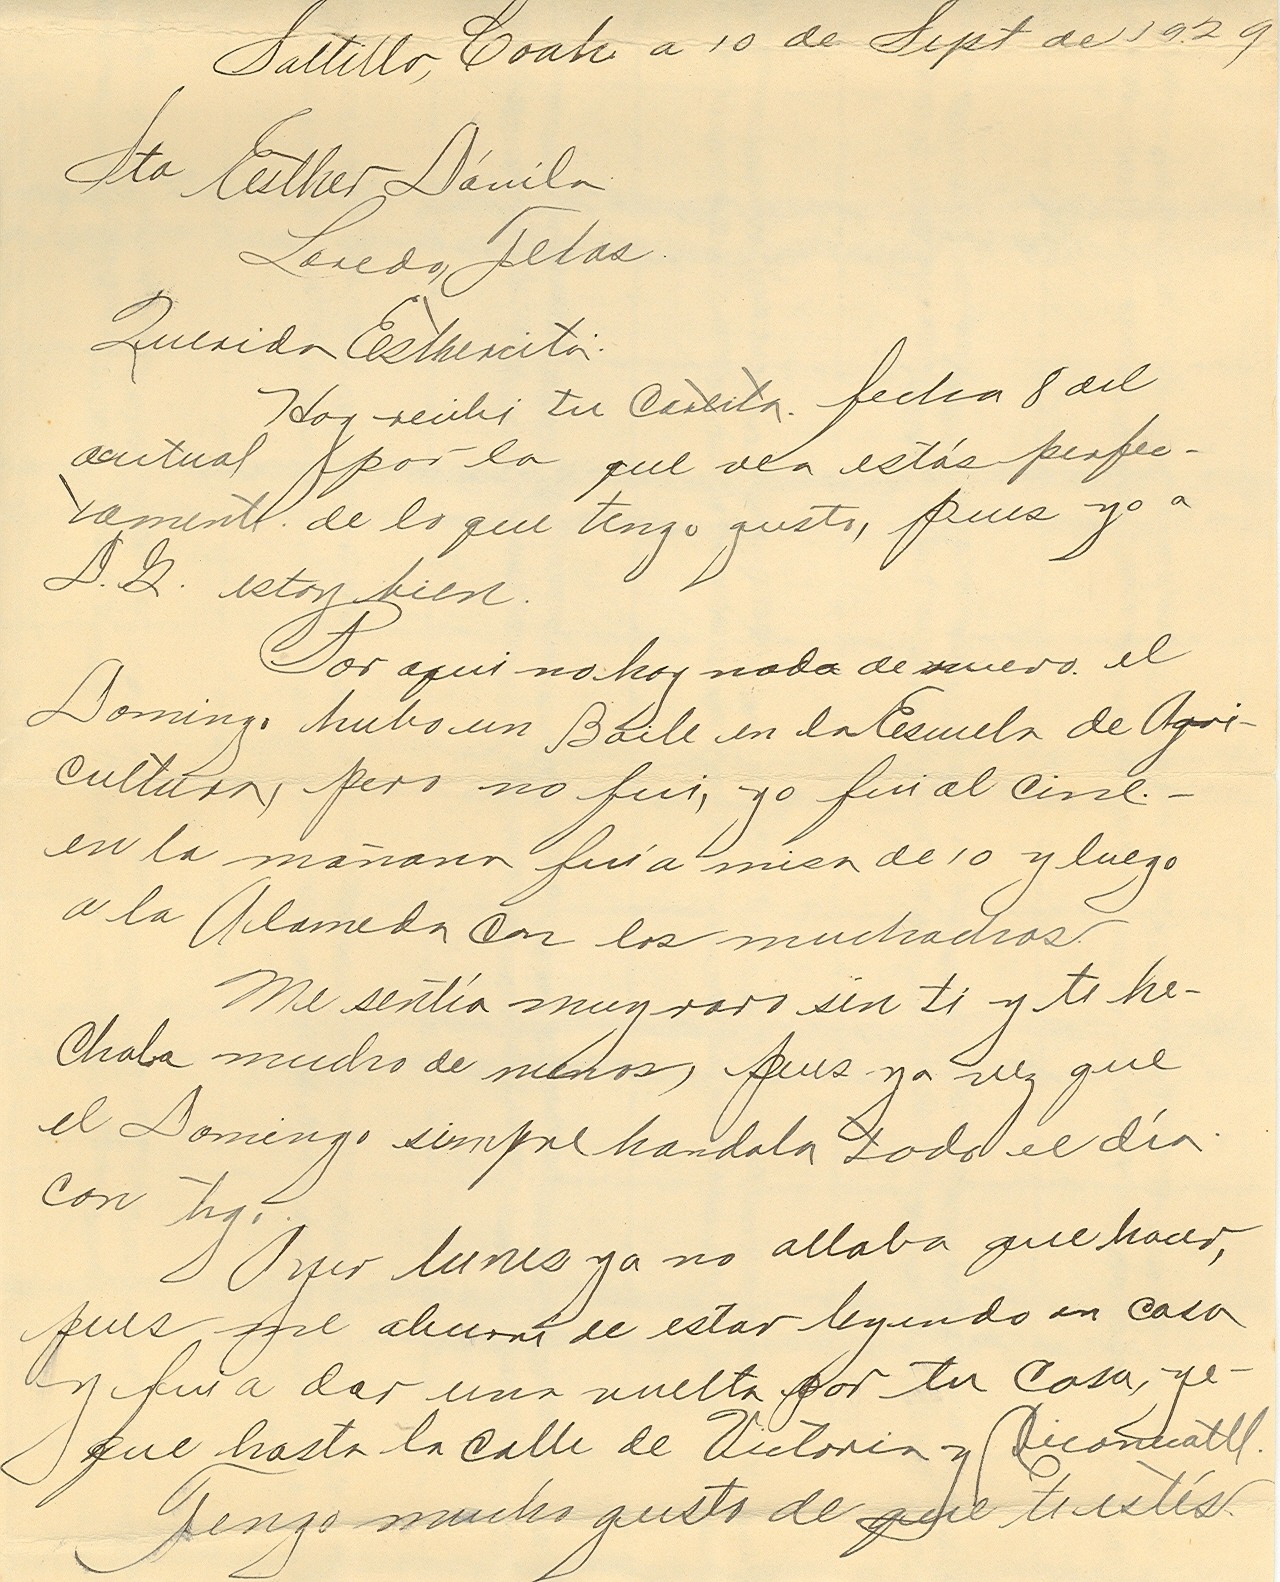 Saltillo, Coah a 10 de Sept de 1929
Sta Esther Dávila
Laredo, Tejas.
Querida Esthercita:
Hoy recibi tu cartita. fecha 8 del
actual y por la que vea estás perfec-
tamente. de lo que tengo gusto, pues yo a
D. G. estoy bien.
Por aqui no hay nada de nuevo. el
Domingo hubo un Baile en la Escuela de Agri-
cultura, pero no fui, yo fui al cine. -
en la mañana fui a misa de 10 y luego
a la Alameda con los muchachos.
Me sentía muy raro sin ti y te he-
chaba mucho de menos, pues ya vez que
el Domingo siempre handaba todo el día.
con tigo.
Ayer lunes ya no allaba que hacer,
pues me aburri de estar leyendo en casa
y fui a dar una vuelta por tu casa, ye-
gue hasta la calle de Victoria y
Tengo mucho gusto de que te estés